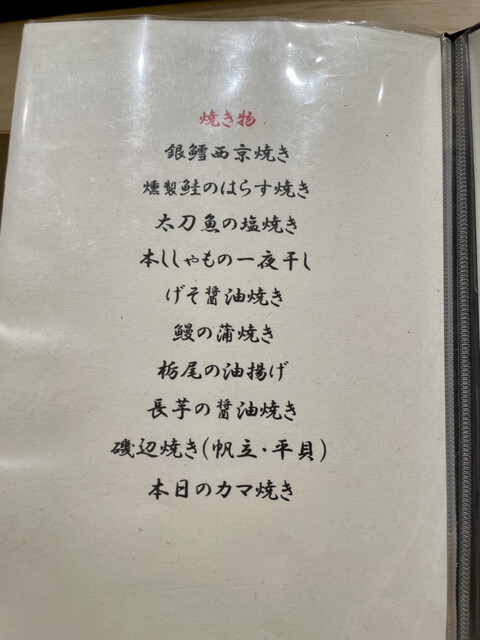 焼き物
銀鱈西京焼き
燻製鮭のはらす焼き
太刀魚の塩焼き
本ししゃもの一夜干し
げそ醤油焼き
鰻の蒲焼き
栃尾の油揚げ
長芋の醤油焼き
磯辺焼き(帆立・平貝)
本日のカマ焼き